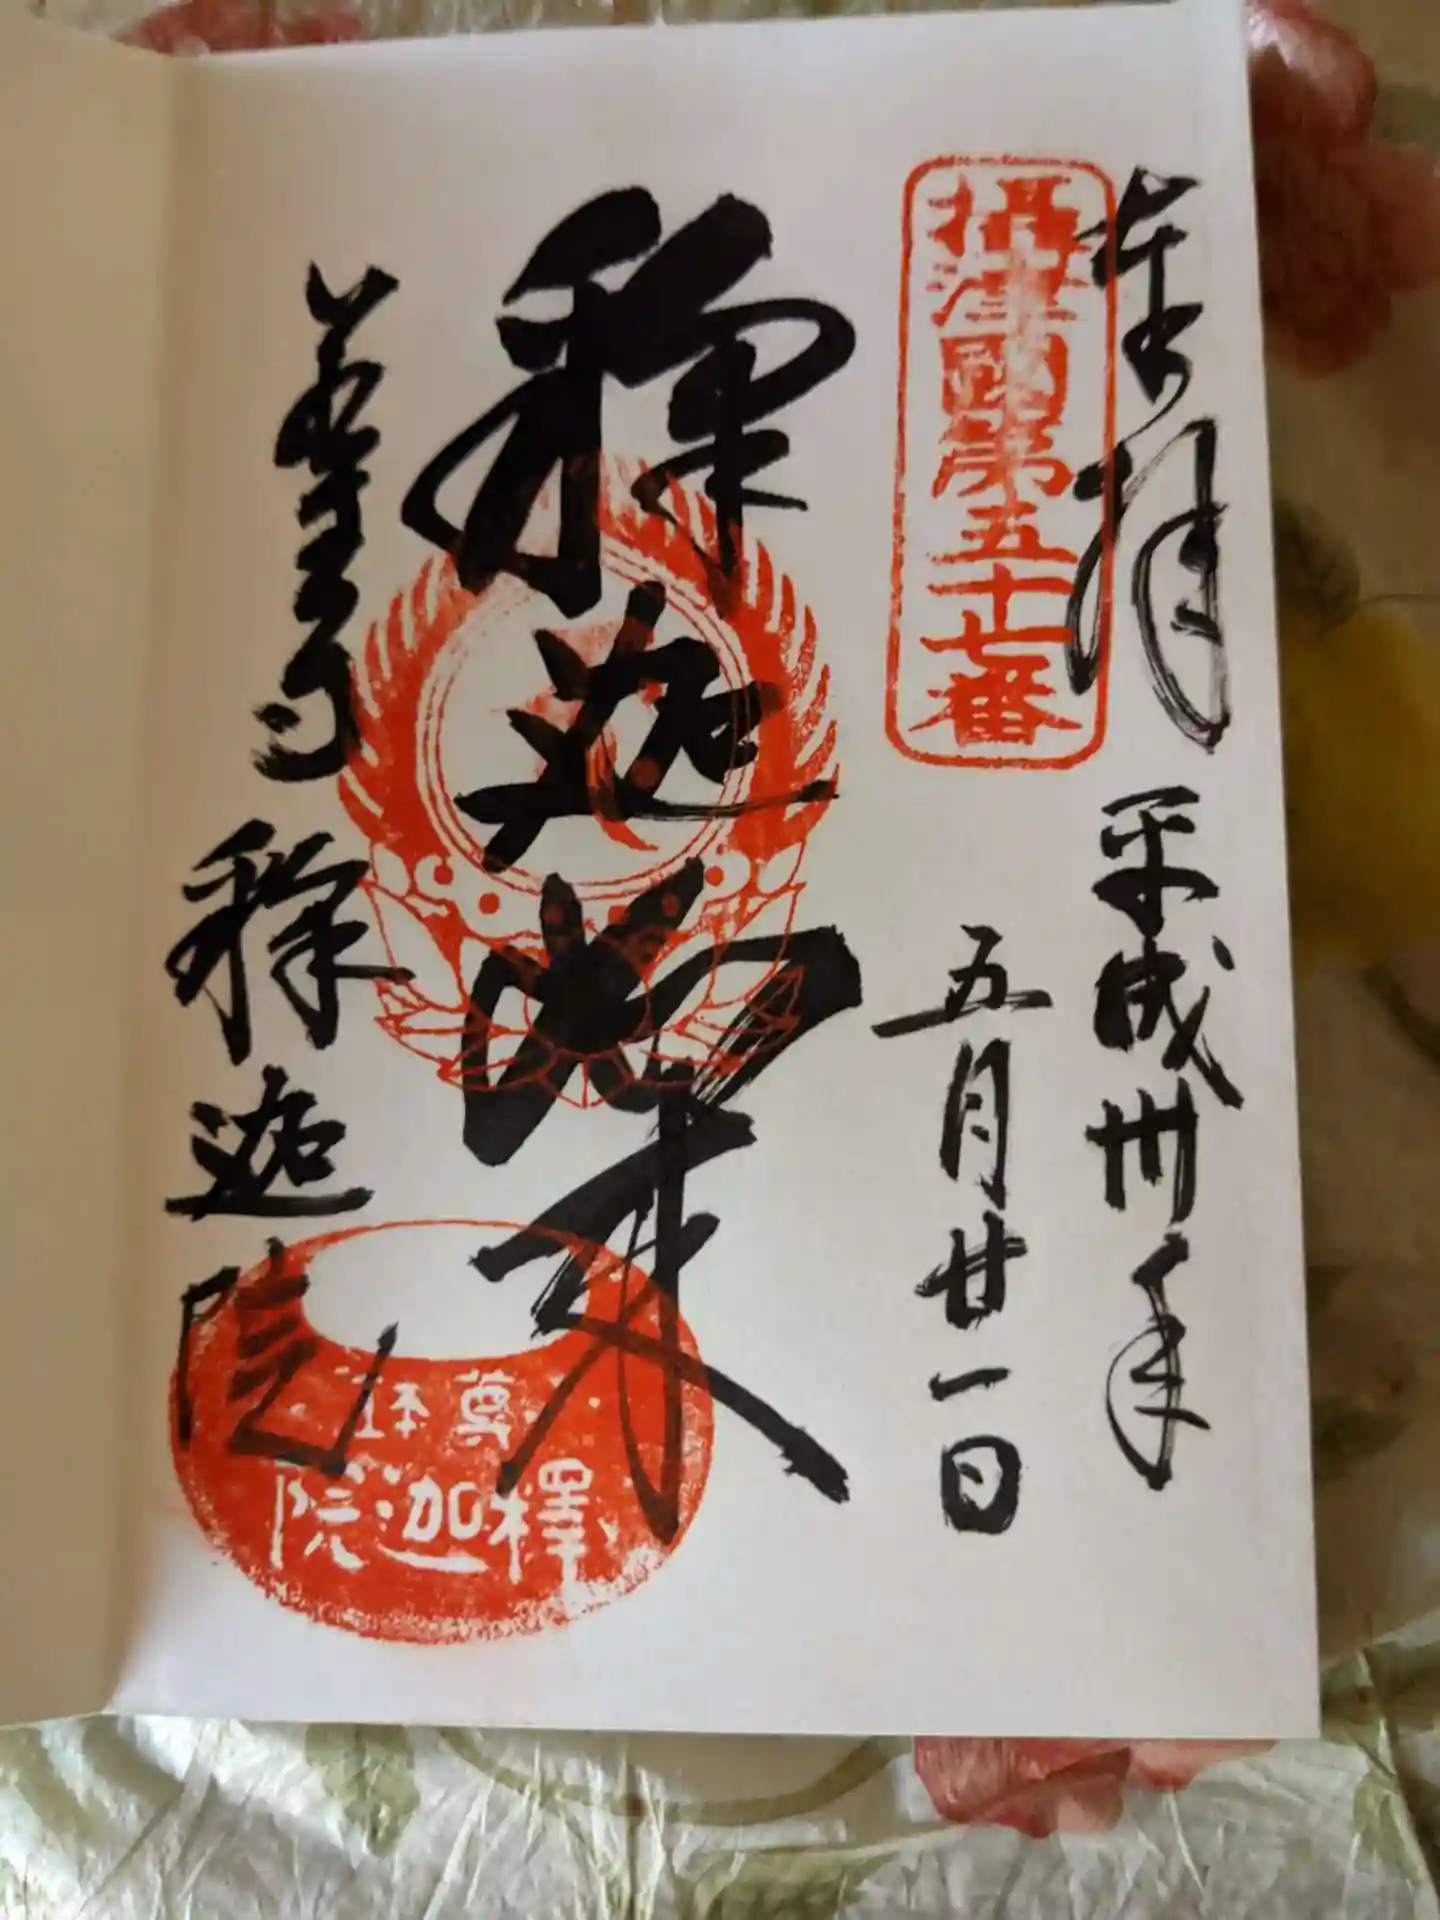 奉拝
平成卅年
五月廿一日
摂津國第五十七番
釋迦如来
若王寺
釋迦院
尊鉢
釋迦院